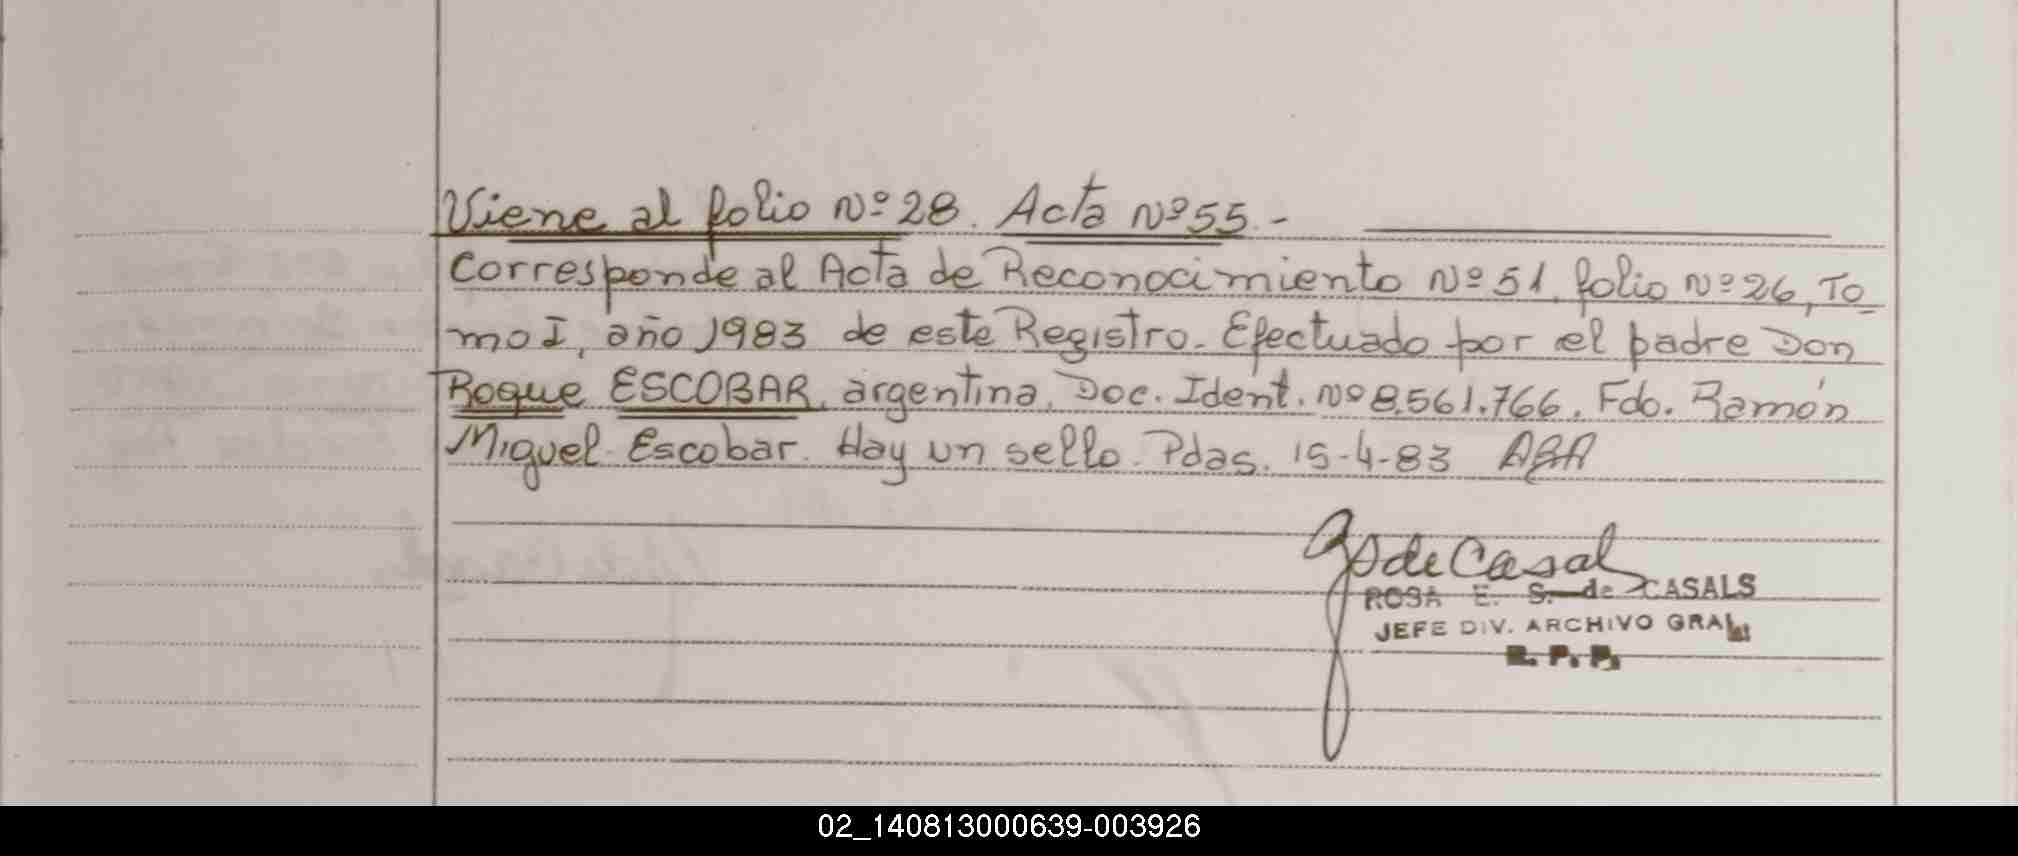 Viene al folio Nº 28. Acta Nº 55.-
Corresponde al Acta de Reconocimiento Nº 51, folio Nº 26, To
mo I, año 1983 de este Registro. Efectuado por el padre Don
Roque ESCOBAR, argentina, Doc. Ident. Nº 8.561.766. Fdo. Ramón
Miguel Escobar. Hay un sello. Pdas. 15-4-83
de Casal
ROSA E. S. de CASALS
JEFE DIV. ARCHIVO GRAL.
R. P. P.
02_140813000639-003926